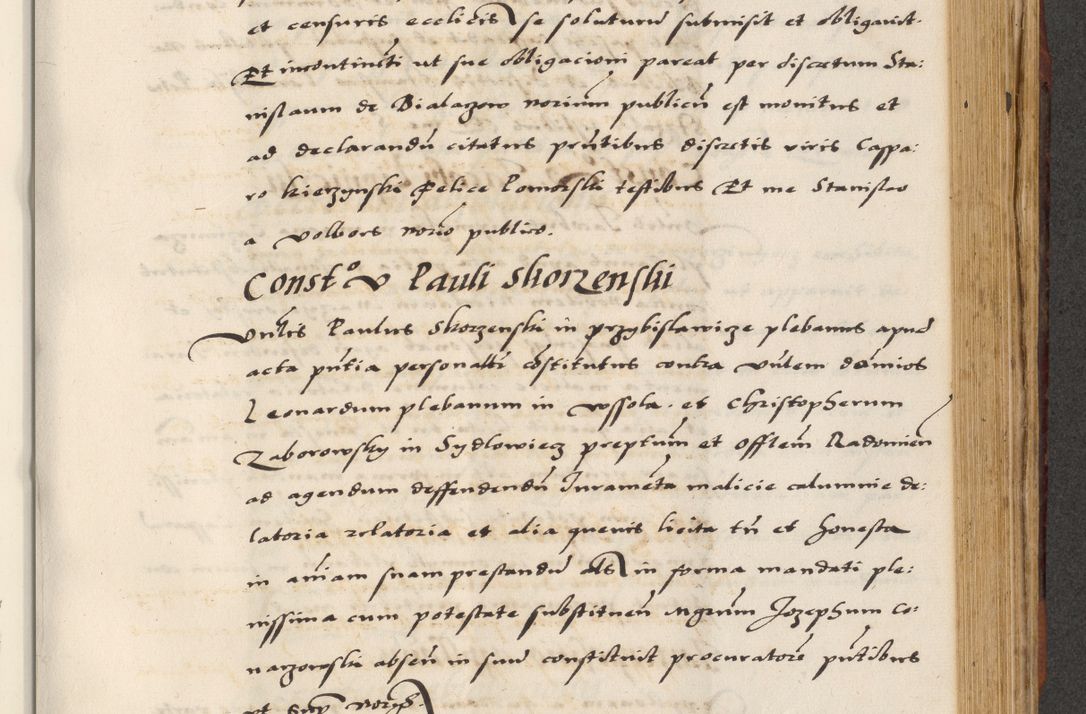 et censuris ecclicis se soluturum submisit et obligavit.
Et incontinēti ut sue obligacioni pareat per discretum Sta:
nislaum de Bialaczow norium publicū est monitus et
ad declarandū citatus prntibus discretis viris Caspa:
ro kierzynski Felice Pomorski testibus Et me Stanislao
a Volbors norio publico.
Constᵒ v Pauli Skorzenski
Vnlis Paulus Skorzenski in przybislawicze plebanus apud
acta pntia personaltr cōstitutus contra vnlem dominos
Leonardum plebanum in Wssola. et Christopherum
Zaborowsky in Sydlowiecz preptum et offlem Radomien
ad agendum deffendendū Iuramēta malicie calumnie de:
latoria relatoria et alia quevis licita tn et honesta
in aniam suam prestandum als in forma mandati ple:
nissima cum potestate substituen Mgrum Jozephum Co:
narzowski absen in suum constituit procuratorē pntibus
et supra noris.